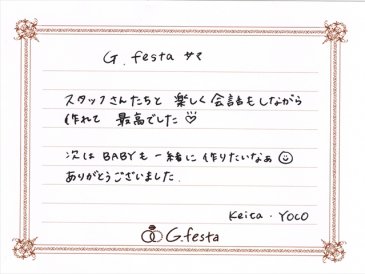 G. festa サマ
スタッフさんたちと 楽しく会話もしながら
作れて 最高でした♡
次は BABYも一緒に作りたいなぁ☺
ありがとうございました.
Keita・YOCO
G.festa